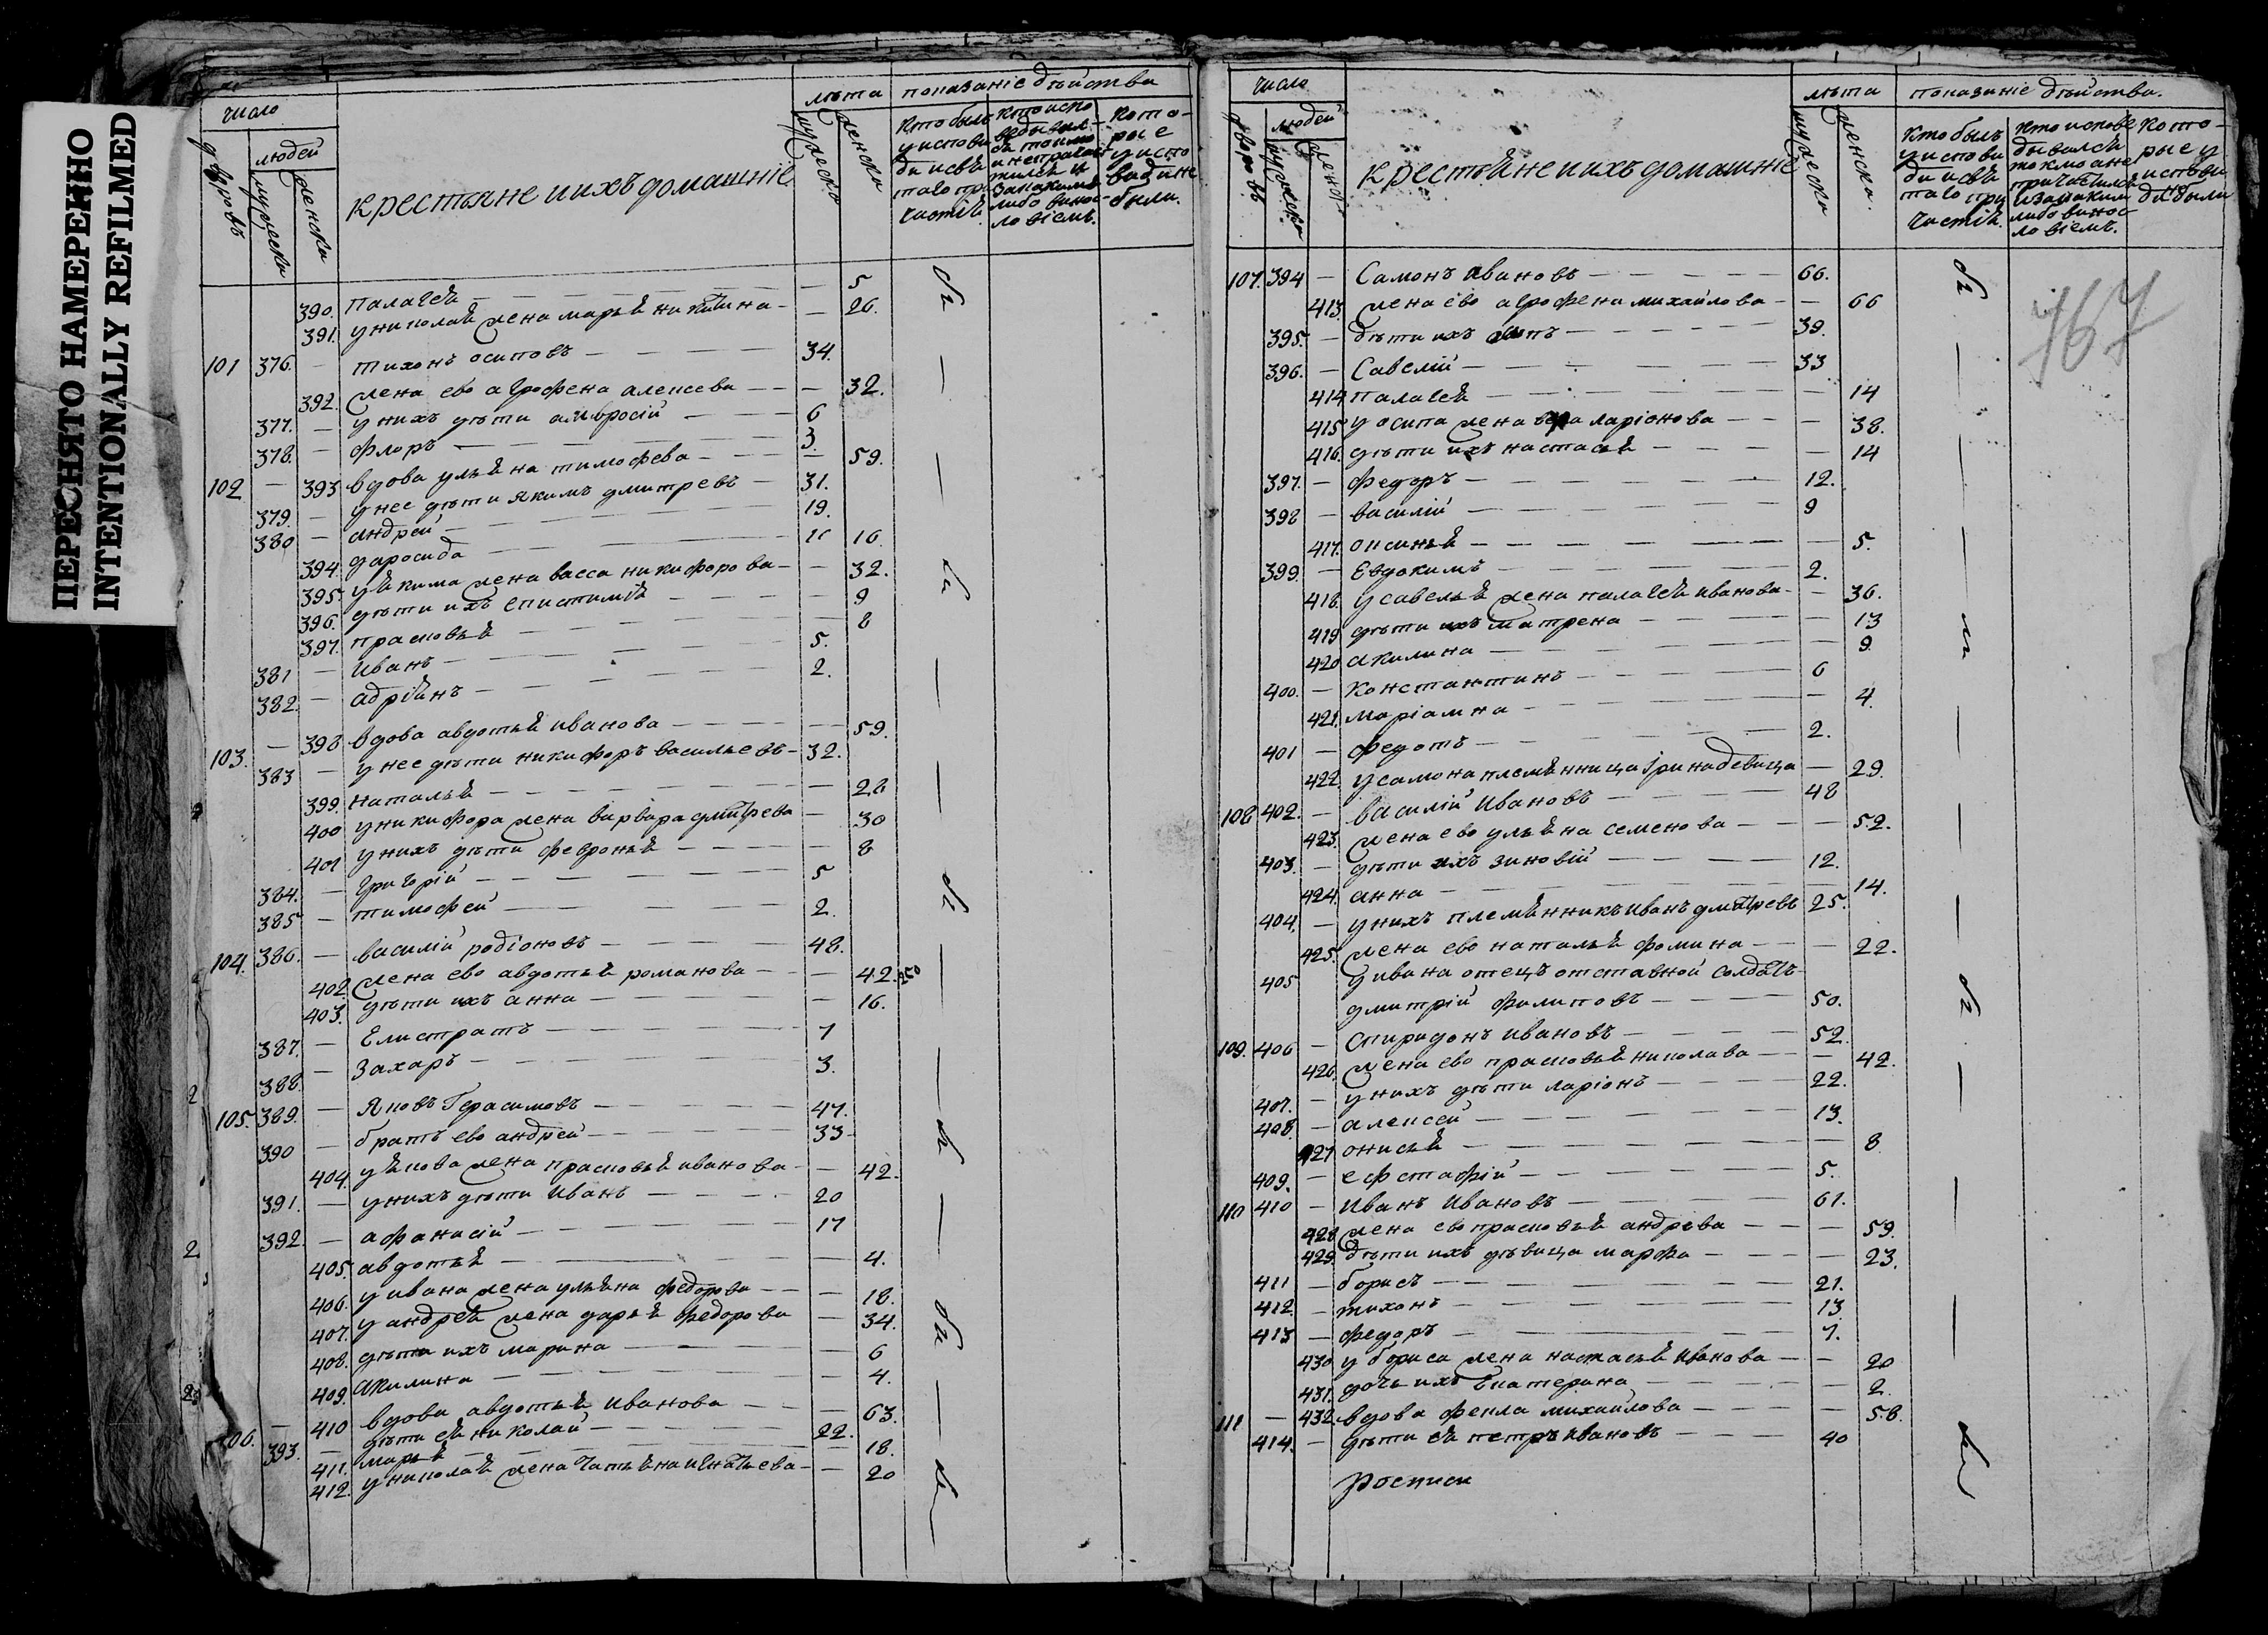 ПЕРЕСНЯТО НАМЕРЕННО
INTENTIONALLY REFILMED
число
лѣта показаніе дѣйства
дворовъ
людей
мужеска
женска
крестьяне и ихъ домашніе
мужеска
женска
390. палагея — 5
391. у николая жена марья никитина — 26.
101 376. — тихонъ осиповъ — 34.
392. жена ево агрофена алексеева — 32.
377. — у нихъ дѣти амбросій — 6
378. — флоръ — 3.
102 — 393 вдова ульяна тимофева — 59.
379. — у нее дѣти якимъ дмитревъ — 31.
380 — андрей — 19.
394. 16.
395. у якима жена васса никифорова — 32.
396. дѣти ихъ епистимія — 9
397. прасковья — 8
381 — иванъ — 5.
382. — адріянъ — 2.
103. — 398 вдова авдотья иванова — 59.
383 — у нее дѣти никифоръ васильевъ — 32.
399. наталья — 28
400 у никифора жена варвара дмитрева — 30
401 у нихъ дѣти февронья — 8
384. — григорій — 5
385 — тимофей — 2.
104. 386. — василій родіоновъ — 48.
402. жена ево авдотья романова — 42.
403. дѣти ихъ анна — 16.
387. — Елистратъ — 7
388. — Захаръ — 3.
105. 389. — Яковъ Герасимовъ — 47.
390 — братъ ево андрей — 33
404. у якова жена прасковья иванова — 42.
391. — у нихъ дѣти иванъ — 20
392. — афанасій — 17
405. авдотья — 4.
406. у ивана жена ульяна федорова — 18.
407. у андрея жена дарья федорова — 34.
408. дѣти ихъ марина — 6
409. акилина — 4.
106. — 410 вдова авдотья иванова — 63.
393. — дѣти ея николай — 22.
411. марья — 18.
412. у николая жена татьяна игнатьева — 20
число
лѣта показаніе дѣйства.
дворовъ
людей
мужеска
женска
крестьяне и ихъ домашніе
мужеска
женска.
767
107. 394 — Самонъ ивановъ — 66.
413. жена ево агрофена михайлова — 66
395. — дѣти ихъ — 39.
396. — Савелій — 33
414 палагея — 14
415 у осипа жена ларіонова — 38.
416. дѣти ихъ настасья — 14
397. — федоръ — 12.
398 — василій — 9
417. оксинья — 5.
399. — Евдокимъ — 2.
418. у савелья жена палагея иванова — 36.
419 дѣти ихъ матрена — 13
420 акилина — 9
400. — Константинъ — 6
421. маріамна — 4.
401 — федотъ — 2.
422. у самона племянница ірина девица — 29.
108 402. — василій ивановъ — 48
423. жена ево ульяна семенова — 52.
403. — дѣти ихъ зиновій — 12.
424. анна — 14.
404. — у нихъ племянникъ иванъ дмитревъ 25.
425. жена ево наталья фомина — 22.
405 у ивана отецъ отставной солдатъ
дмитрій филиповъ — 50.
109. 406 — Спиридонъ ивановъ — 52.
426. жена ево прасковья николава — 42.
407. — у нихъ дѣти ларіонъ — 22.
408. — алексей — 13.
427 онисья — 8
409. — ефстафій — 5.
110 410 — иванъ ивановъ — 61.
428. жена ево прасковья андрева — 59.
429. дѣти ихъ дѣвица марфа — 23.
411 — борисъ — 21.
412. — тихонъ — 13
413 — федоръ — 7.
430 у бориса жена настасья иванова — 20
431. дочь ихъ Екатерина — 2.
111 — 432. вдова фекла михайлова — 58.
414. — дѣти ея петръ ивановъ — 40
росписи